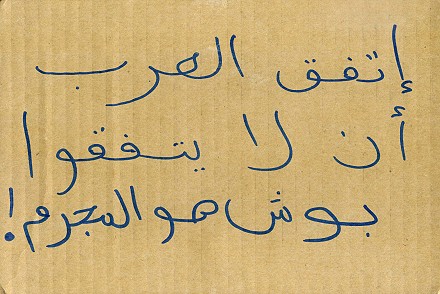 إتفق العرب
أن لا يتفقوا
بوش هو المجرم!